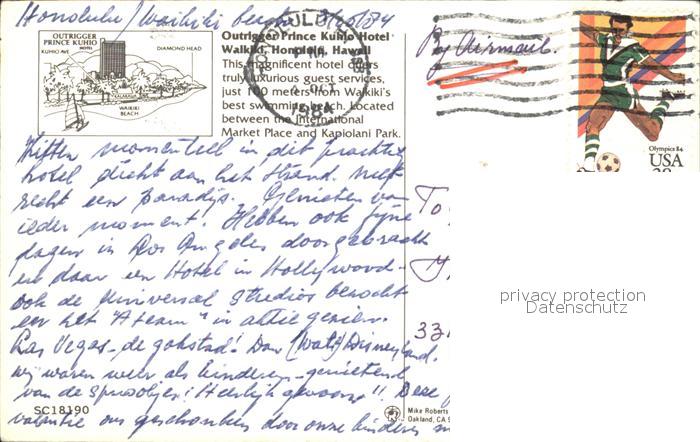 Honolulu/Waikiki beach
OUTRIGGER
PRINCE KUHIO
HOTEL
KUHIO AVE
DIAMOND HEAD
KALAKAUA
WAIKIKI
BEACH
Outrigger Prince Kuhio Hotel
Waikiki, Honolulu, Hawaii
This magnificent hotel offers
truly luxurious guest services,
just 100 meters from Waikiki's
best swimming beach. Located
between the International
Market Place and Kapiolani Park.
OCT
1984
By Airmail.
Olympics 84
USA
Zitten momenteel in dit prachtig
hotel dicht aan het strand. Met
recht een paradijs. Genieten van
ieder moment. Hebben ook fijne
dagen in Los Angeles doorgebracht
en daar een Hotel in Hollywood-
ook de Universal Studios bezocht
en het "A team" in aktie gezien.
Las Vegas- de gokstad! Dan (Walt) Disneyland.
wij waren weer als kinderen - genietend
van de sprookjes! Heerlijk gewoon!! Deze
vakantie ons geschonken door onze kinderen
To
33
SC18190
Mike Roberts
Oakland, CA 9
privacy protection
Datenschutz